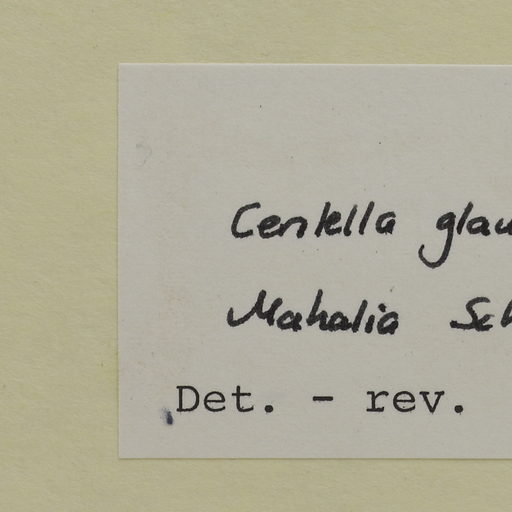 Centella glau
Mahalia Sch
Det. - rev.